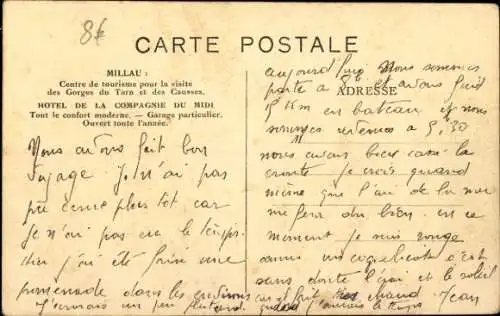 8€
CARTE POSTALE
MILLAU :
Centre de tourisme pour la visite
des Gorges du Tarn et des Causses.
HOTEL DE LA COMPAGNIE DU MIDI
Tout le confort moderne. — Garage particulier.
Ouvert toute l'année.
Nous avons fait bon
voyage. Je n'ai pas
pu plus tôt car
Je n'ai pas eu le temps.
j'ai été faire une
promenade dans les environs
ADRESSE
aujourd'hui Nous sommes
à et avons fait
5 Km en bateau et nous
sommes revenus à 5,30
nous avons bien cassé la
croûte je crois quand
même que l'air de la mer
me fera du bien. en ce
moment je suis rouge
comme un coquelicot c'est
sans doute l'air et le soleil
car il fait chaud. Jean
un peu plus tard quand j'aurais le temps